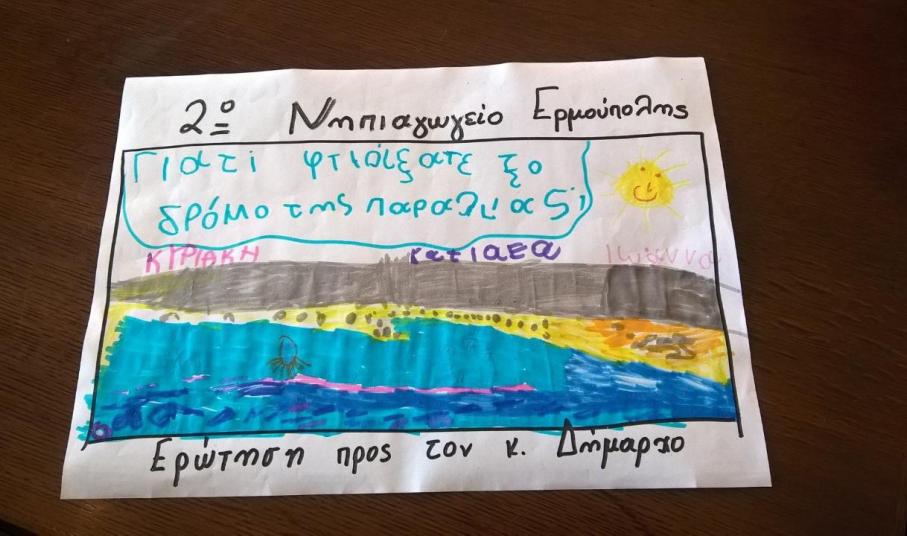 2º Νηπιαγωγείο Ερμούπολης
Γιατί φτιάξατε το
δρόμο της παραλίας;
ΚΥΡΙΑΚΗ ΚατΙΛΕΝΑ Ιωάννα
Ερώτηση προς τον κ. Δήμαρχο